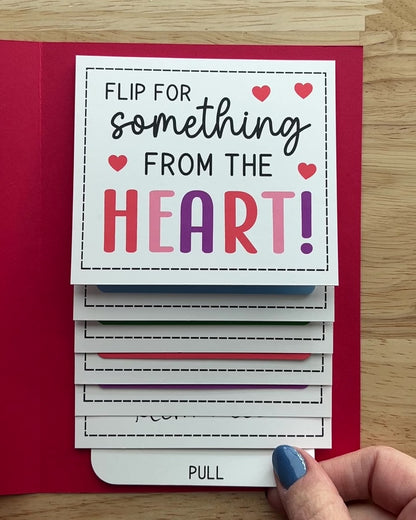 FLIP FOR
something
FROM THE
HEART!
PULL